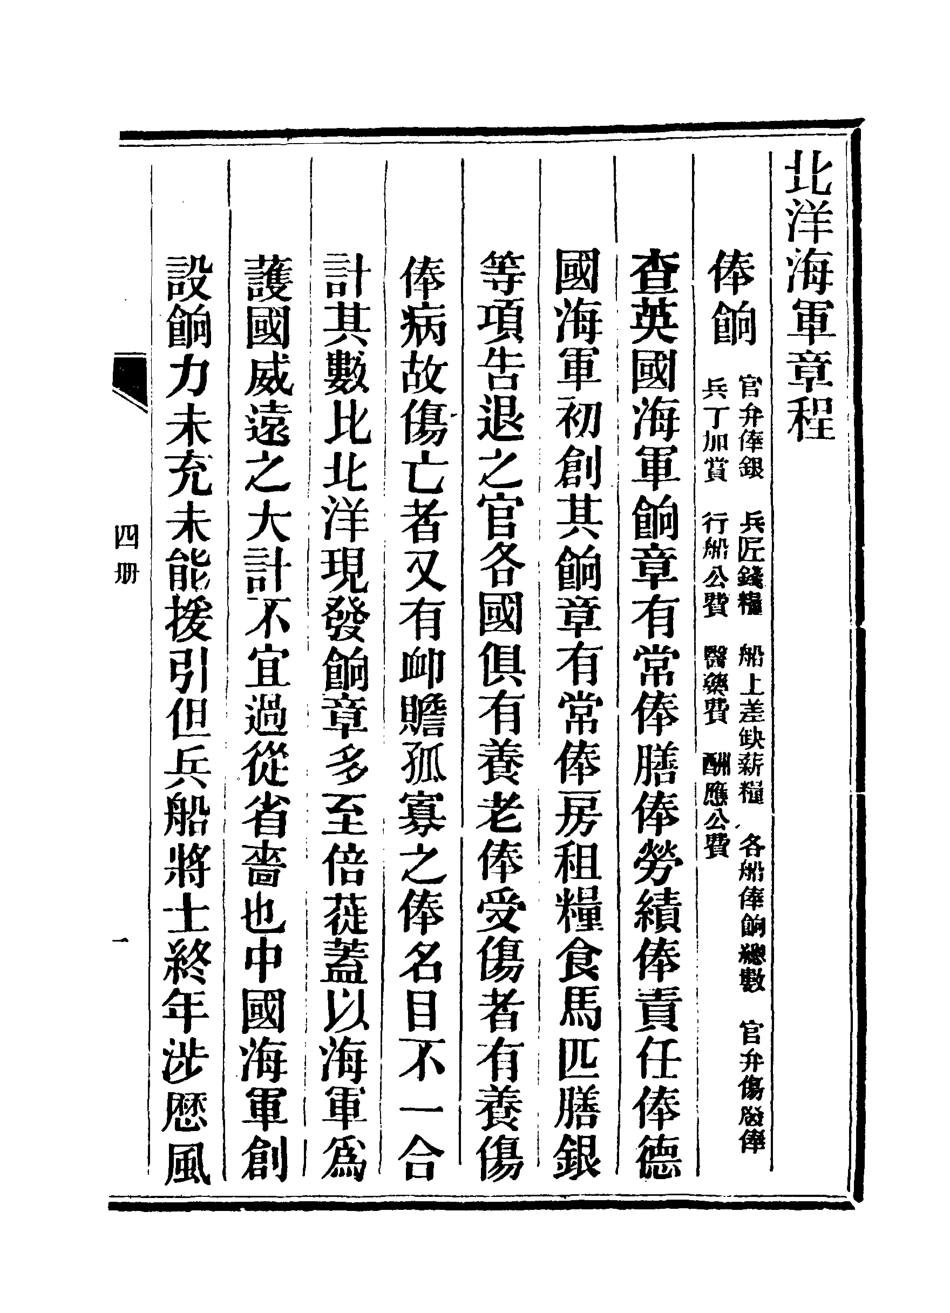 北洋海軍章程
俸餉
官弁俸銀 兵匠錢糧 船上差缺薪糧 各船俸餉總數 官弁傷廢俸
兵丁加賞 行船公費 醫藥費 酬應公費
查英國海軍餉章有常俸膳俸勞績俸責任俸德
國海軍初創其餉章有常俸房租糧食馬匹膳銀
等項告退之官各國俱有養老俸受傷者有養傷
俸病故傷亡者又有卹贍孤寡之俸名目不一合
計其數比北洋現發餉章多至倍蓰蓋以海軍爲
護國威遠之大計不宜過從省嗇也中國海軍創
設餉力未充未能援引但兵船將士終年涉歷風
四册
一